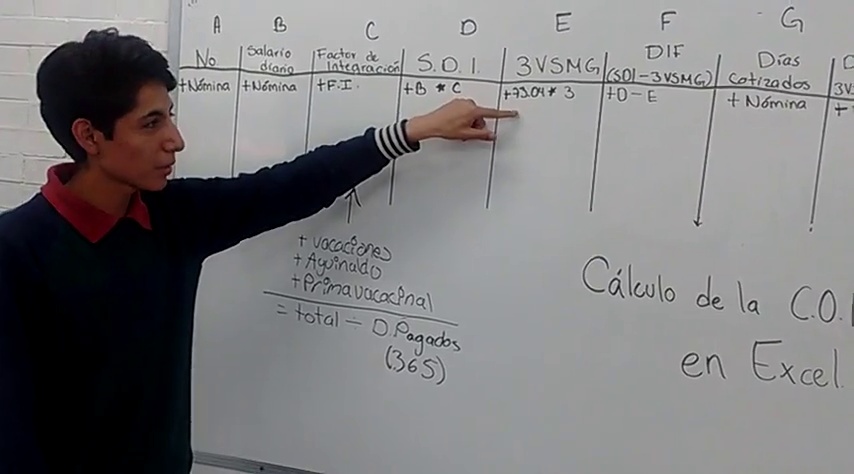 A B C D E F G
No. Salario diario Factor de integración S.D.I. 3VSMG DIF (SDI-3VSMG) Días cotizados
+Nómina +Nómina +F.I. +B * C +73.04 * 3 +D-E + Nómina +
+ vacaciones
+ Aguinaldo
+Prima vacacinal
= total ÷ D.Pagados
(365)
Cálculo de la C.O.
en Excel